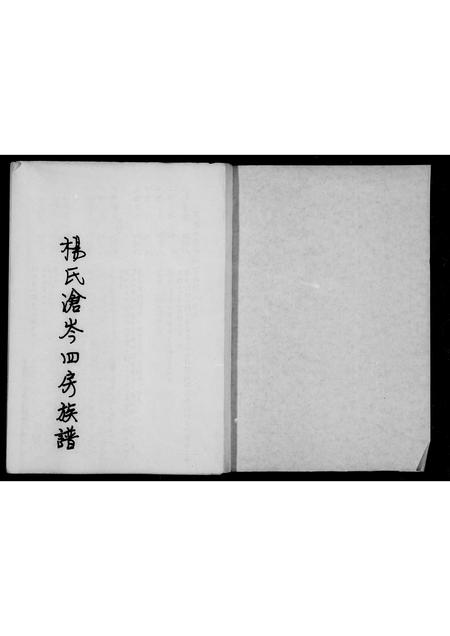 楊氏滄岑四房族譜